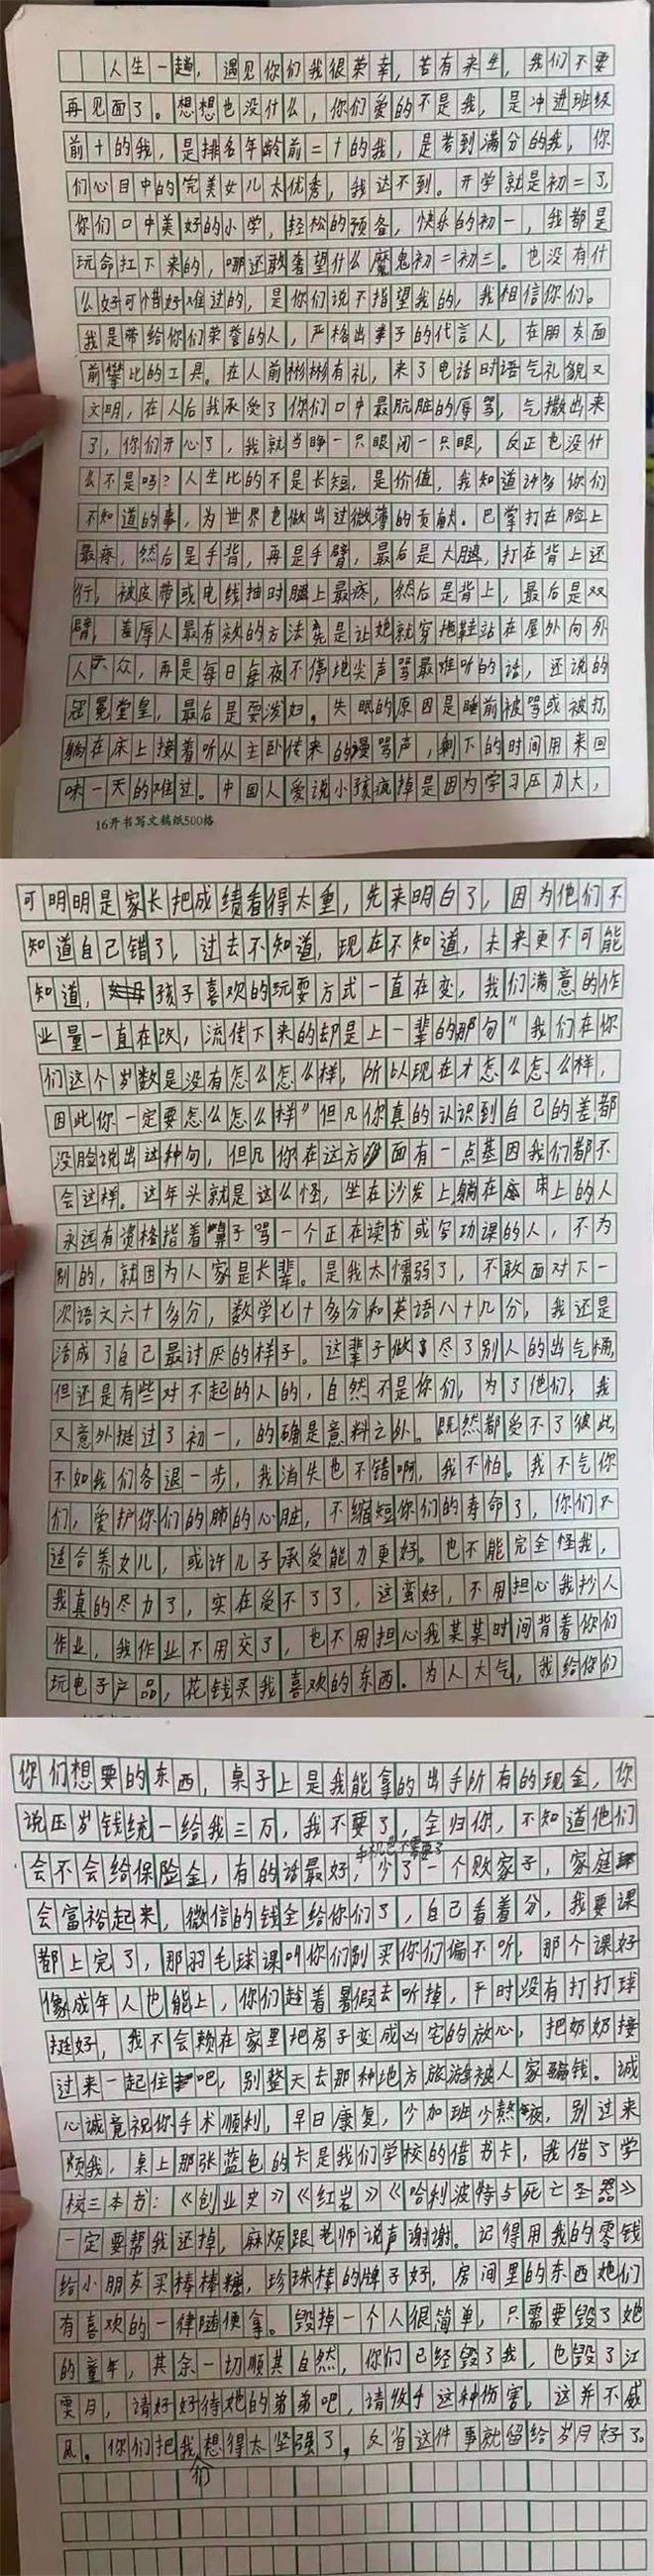 人生一趟，遇见你们我很荣幸，若有来生，我们不要
再见面了。想想也没什么，你们爱的不是我，是冲进班级
前十的我，是排名年龄前二十的我，是考到满分的我，你
们心目中的完美女儿太优秀，我达不到。开学就是初二了，
你们口中美好的小学，轻松的预备，快乐的初一，我都是
玩命扛下来的，哪还敢奢望什么魔鬼初二初三。也没有什
么好可惜好难过的，是你们说不指望我的，我相信你们。
我是带给你们荣誉的人，严格出孝子的代言人，在朋友面
前攀比的工具。在人前彬彬有礼，来了电话时语气礼貌又
文明，在人后我承受了你们口中最肮脏的辱骂，气撒出来
了，你们开心了，我就当睁一只眼闭一只眼，反正也没什
么不是吗？人生比的不是长短，是价值，我知道许多你们
不知道的事，为世界也做出过微薄的贡献。巴掌打在脸上
最疼，然后是手背，再是手臂，最后是大腿，打在背上还
行，被皮带或电线抽时腿上最疼，然后是背上，最后是双
臂，羞辱人最有效的方法竟是让她就穿拖鞋站在屋外向外
人示众，再是每日每夜不停地尖声骂最难听的话，还说的
冠冕堂皇，最后是耍泼妇。失眠的原因是睡前被骂或被打，
躺在床上接着听从主卧传来的谩骂声，剩下的时间用来回
味一天的难过。中国人爱说小孩疯掉是因为学习压力大，
16开书写文稿纸500格
可明明是家长把成绩看得太重，先来明白了，因为他们不
知道自己错了，过去不知道，现在不知道，未来更不可能
知道，孩子喜欢的玩耍方式一直在变，我们满意的作
业量一直在改，流传下来的却是上一辈的那句"我们在你
们这个岁数是没有怎么怎么样，所以现在才怎么怎么样，
因此你一定要怎么怎么样"但凡你真的认识到自己的差都
没脸说出这种句，但凡你在这方面有一点基因我们都不
会这样。这年头就是这么怪，坐在沙发上躺在床上的人
永远有资格指着鼻子骂一个正在读书或写功课的人，不为
别的，就因为人家是长辈。是我太懦弱了，不敢面对下一
次语文六十多分，数学七十多分和英语八十几分，我还是
活成了自己最讨厌的样子。这辈子做尽了别人的出气桶，
但还是有些对不起的人的，自然不是你们，为了他们，我
又意外挺过了初一，的确是意料之外。既然都受不了彼此
不如我们各退一步，我消失也不错啊，我不怕。我不气你
们，爱护你们的肺的心脏，不缩短你们的寿命了，你们不
适合养女儿，或许儿子承受能力更好。也不能完全怪我，
我真的尽力了，实在受不了了，这蛮好，不用担心我抄人
作业，我作业不用交了，也不用担心我某某时间背着你们
玩电子产品，花钱买我喜欢的东西。为人大气，我给你们
你们想要的东西，桌子上是我能拿的出手所有的现金，你
说压岁钱统一给我三万，我不要了，全归你，不知道他们
手机也不需要了
会不会给保险金，有的话最好，少了一个败家子，家庭
会富裕起来，微信的钱全给你们了，自己看着分，我要课
都上完了，那羽毛球课叫你们别买你们偏不听，那个课好
像成年人也能上，你们趁着暑假去听掉，平时没有打打球
挺好，我不会赖在家里把房子变成凶宅的放心，把奶奶接
过来一起住吧，别整天去那种地方旅游被人家骗钱。诚
心诚意祝你手术顺利，早日康复，少加班少熬夜，别过来
烦我，桌上那张蓝色的卡是我们学校的借书卡，我借了学
校三本书：《创业史》《红岩》《哈利波特与死亡圣器》
一定要帮我还掉，麻烦跟老师说声谢谢。记得用我的零钱
给小朋友买棒棒糖，珍珠棒的牌子好，房间里的东西她们
有喜欢的一律随便拿。毁掉一个人很简单，只需要毁了她
的童年，其余一切顺其自然，你们已经毁了我，也毁了江
雯月，请好好待她的弟弟吧，请收手这种伤害，这并不威
风。你们把我们想得太坚强了，反省这件事就留给岁月好了。